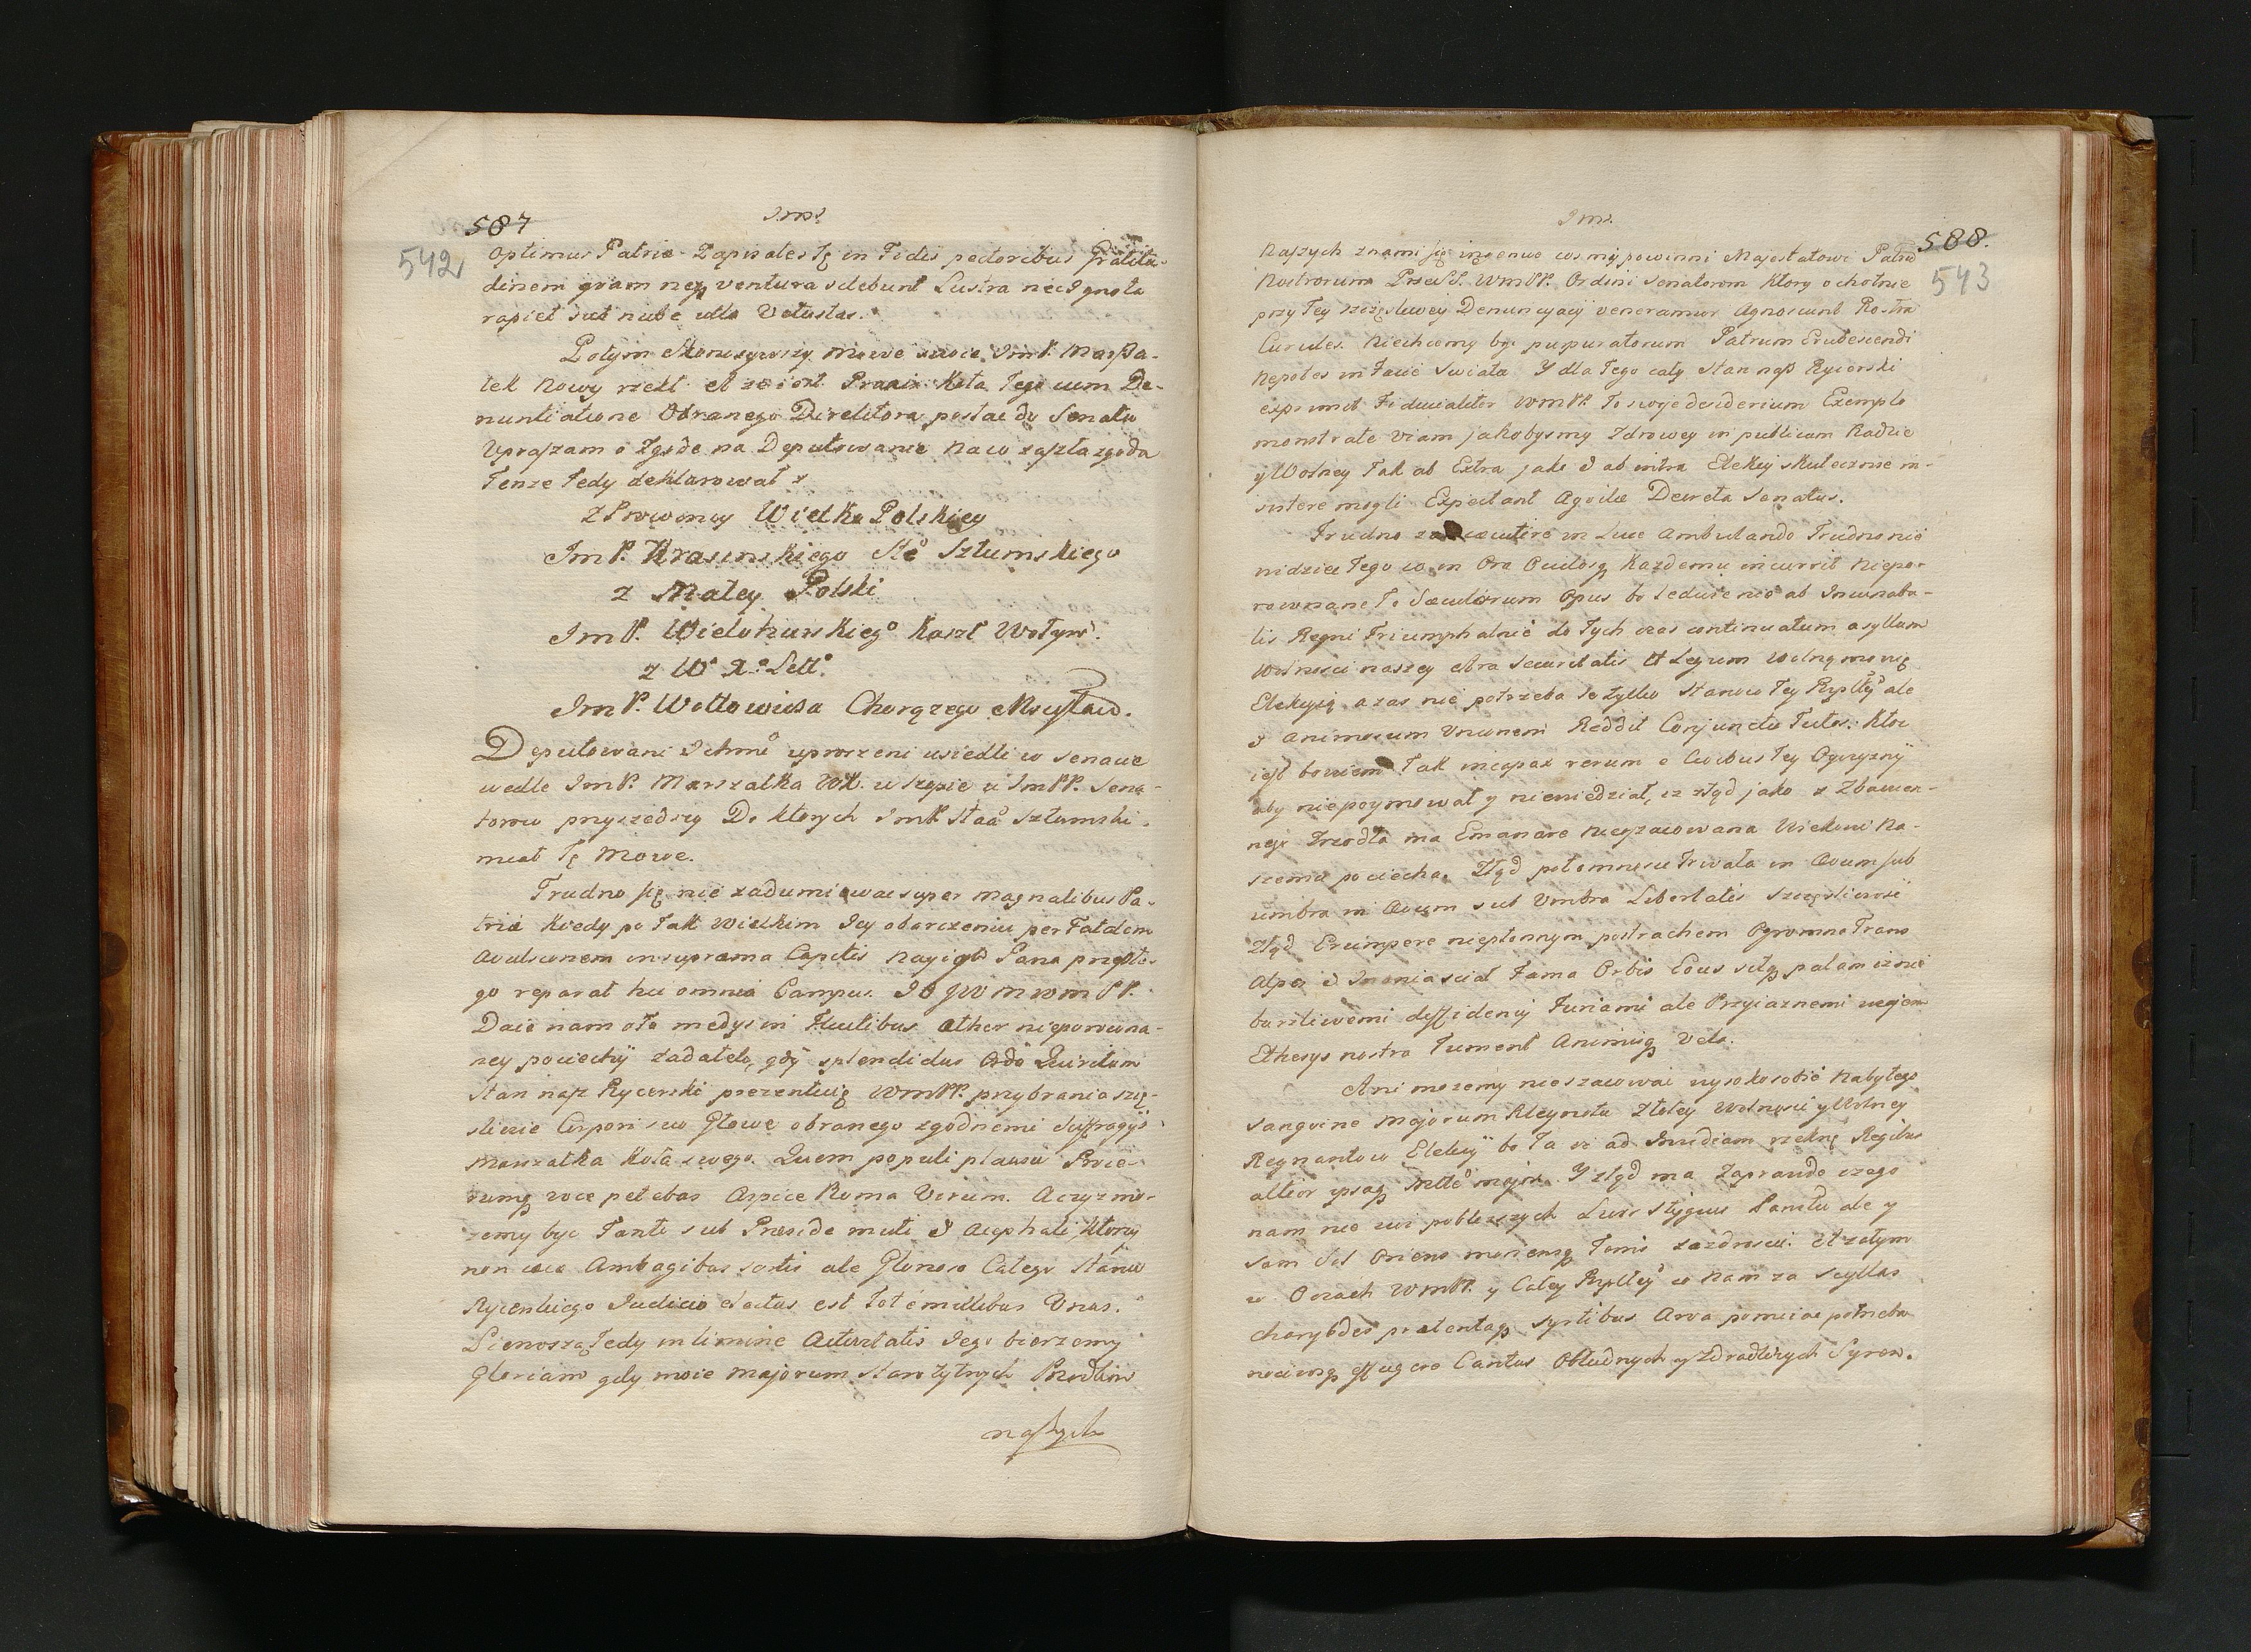 587
Jms.
542
optimus Patriæ Zapisales Tę in Fidis pectoribus Gratitu-
dinem qvam neqz ventura delebunt Lustra nec Ignota
rapiet sub nube ulla Vetustas.
Potym skonczywszy mowe swoie Jm P. Marsza-
łek Nowy rzekł et Praxis Koła Tego cum De-
nuntiatione Obranego Direktora posłac do Senatu
Upraszam o Zgodę na Deputowanie na co zaszła zgoda
Tenze Tedy deklarował
Z Prowincyi Wielko Polskiey
Jm P. Krasinskiego Sto Sztumskiego
z Małey Polski
Jm P. Wielohurskiego Kaszt Wołyn.
z Wo Xo Litt.
Jm P. Wołłowicza Chorązego Mscisław.
Deputowani Ichmc uproszeni usiedli w senacie
wedle Jm P. Marszałka WK. w szopie u Jm PP. Sena-
torow przyszedszy Do ktorych Jm P. Staa Sztumski
miał Tę Mowę.
Trudno się nie zadumiewac super magnalibus Pa-
triæ kiedy po Tak Wielkim Jey obarczeniu per Fatalem
Avulsionem in suprema Capitis Nayias Pana przeszłe-
go reparat hic omnia Campus. JO JW M WM PP.
Daie nam oto medys in Fluctibus æther nieporowna-
ney pociechy zadatek, gdy splendidus Ordo Quiritum
Stan nasz Rycerski prezentuię WMPP. przybrania szczę-
śliwie Corpori suo Głowę obranego zgodnemi suffragijs
Marszałka Koła swego. Quem populi plausu Proce-
rumqz voce petebas Aspice Roma Virum. A czyz mo-
zemy byc Tanto sub Præside muti & Acephali ktory
non cæcæ Ambagibus sortis ale Glorioso Całego Stanu
Rycerskiego Judicio electus est Tot e millibus Unus.
Pienosząc Tedy in limine Activitatis Jego bierzemy
Gloriam gdy moie Majorum Starozytnych Przodkow
naszych
Jms.
588.
543
naszych znami się ingenue cosmy powinni Majestatowi Patrū
Nostrorum Przes. WmPP. Ordini Senatorum ktory ochotnie
przy Tey szczęsliwey Denuncyacij veneramur Agnoscunt Rostra
Curules. Niechcemy byc purpuratorum Patrum Erubescendi
Nepotes in facie Swiata Y dla Tego cały Stan nasz Rycerski
exprimit Fiducialiter WMPP. To swoje desiderium Exemplo
monstrate viam jakobysmy Zdrowey in publicum Radzie
y Wolney Tak ab Extra jako & ab intra Elekcij skutecznie in-
sistere mogli Expectant Aqvilæ Decreta Senatus.
Trudno cæcutire in Luce Ambulando Trudno nie
widziec Tego co in Ora Oculosqz Kazdemu incurrit niepo-
rownane To Sæculorum Opus bo ledwie nie ab Incunabu-
lis Regni Triumphalnie do Tych czas continuatum asyllum
Wolnosci naszey Ara Securitatis Et Legum wolną mowię
Elekcyią a zas nie potrzeba To tylko Stanow Tey Rzpltey ale
& Animorum Unionem Reddit Conjunctio Tutos. Ktoz
iest bowiem Tak incapax rerum e Civibus Tey Oyczyzny
aby niepoymował y niewiedział, iz ztąd jako z Zbawien-
nego Zrzodła ma Emanare nieoszacowana Wiekowi Na-
szemu pociecha. Ztąd potomnosci Trwała in Ævum sub
umbra in Ævum sub Umbra Libertatis szczęsliwosc
Ztąd Erumpere niepłonnym postrachem Ogromna Trans
Alpes & Mœnia sciat Fama Orbis Eous scilqz palam iz nie
burzliwemi diffidencij Furiami ale Przyiaznemi wzajem
Ethesys nostra Tument Animisqz Vela.
Ani mozemy nieszacowac wysoko sobie nabytego
Sangvine Majorum Kleynotu Złotey Wolnosci y Wolney
Regnantow Elekcij bo Ta ze ad Invidiam rzeknę Regibus
altior ipsaqz major. Y ztąd ma Zaprawdę czego
nam nie zwi poblizszych Livor Stygius Panstw ale y
sam Sol Oriens moriensqz Fonis zazdroscic. Et zatym
w Oczach WMPP. y Całey Rzpltey co nam za Scyllas
Charybdes protentasqz Syrtibus Arva pominac potrzeba
nociuosqz effugere Cantus Obłudnych y Zdradliwych Syren.